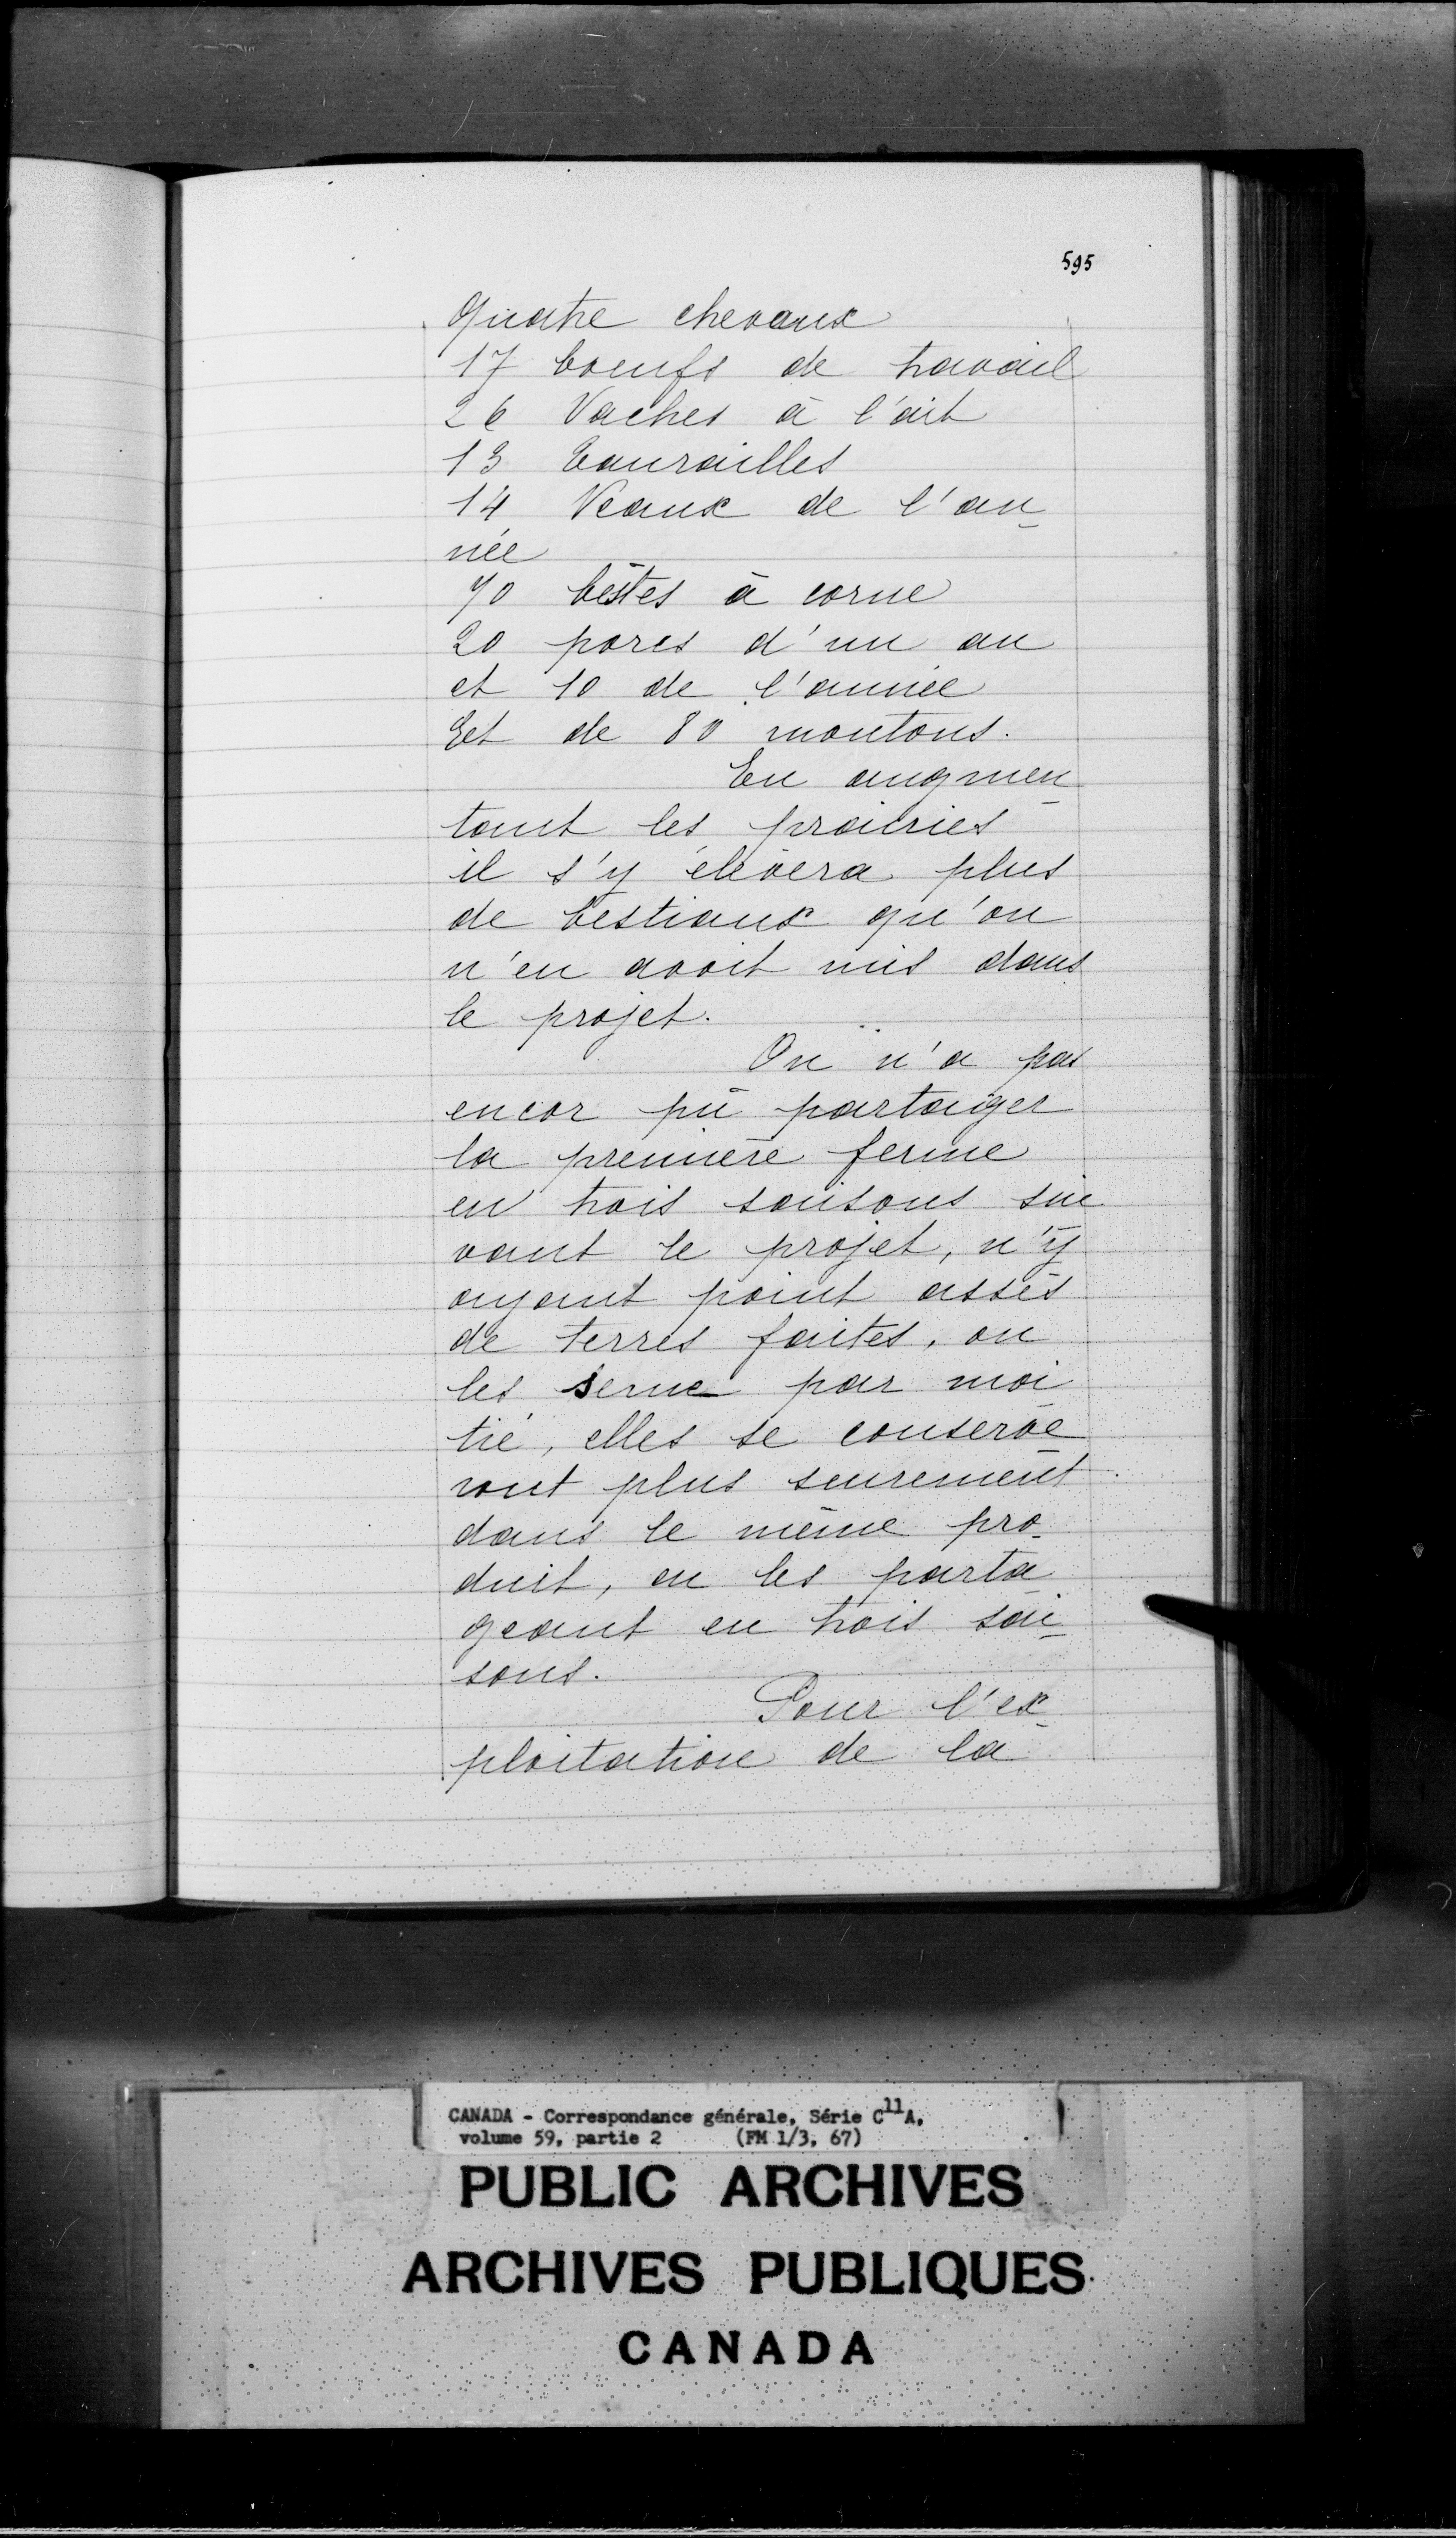 595
Quatre chevaux
17 boeufs de travail
26 Vaches à l'ait
13 taurailles
14 Veaux de l'an-
née
70 bestes à corne
20 porcs d'un an
et 10 de l'année
Et de 80 moutons.
En augmen-
tant les prairies
il s'y élèvera plus
de bestiaux qu'on
n'en avoit mis dans
le projet.
On n'a pas
encor pû partager
la première ferme
en trois saisons sui
vant le projet, n'y
ayant point assés
de terres faites, on
les seme par moi
tié, elles se conserve
ront plus seurement
dans le même pro-
duit, en les parta
geant en trois sai-
sons.
Pour l'ex-
ploitation de la
CANADA - Correspondance générale, Série C11A,
volume 59, partie 2 (FM 1/3, 67)
PUBLIC ARCHIVES
ARCHIVES PUBLIQUES
CANADA